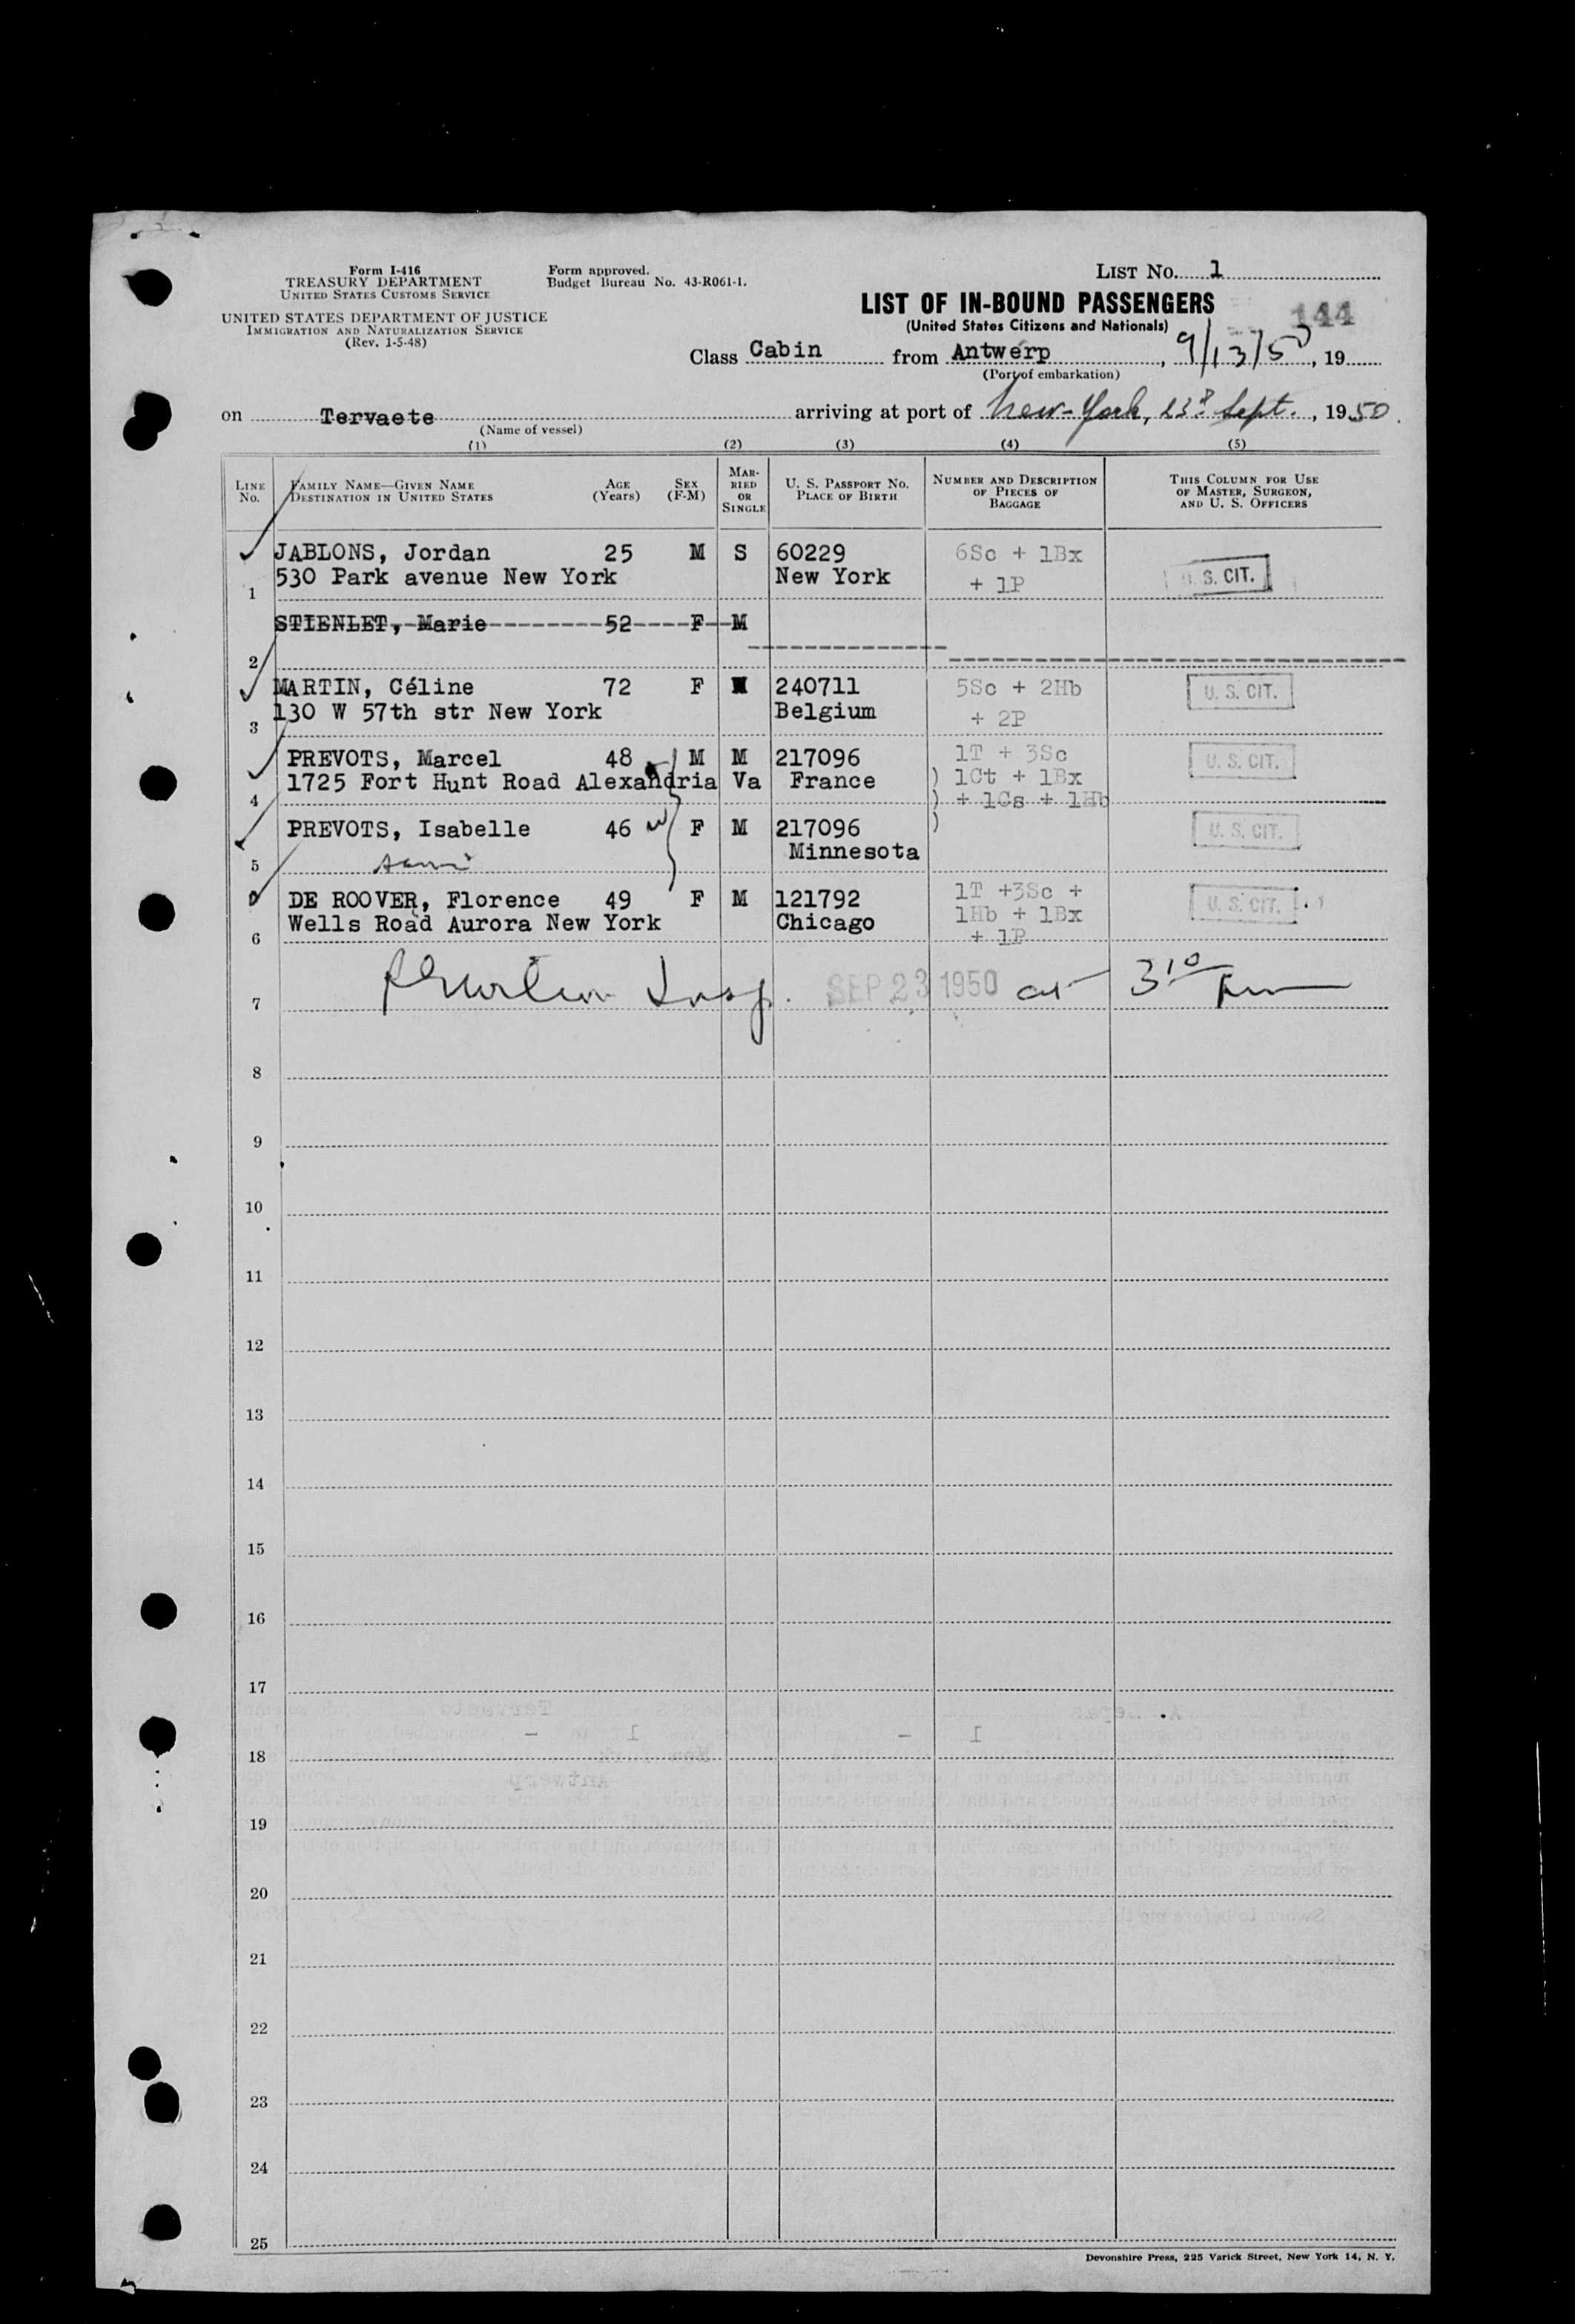 Form I-416
TREASURY DEPARTMENT
UNITED STATES CUSTOMS SERVICE
UNITED STATES DEPARTMENT OF JUSTICE
IMMIGRATION AND NATURALIZATION SERVICE
(Rev. 1-5-48)
Form approved.
Budget Bureau No. 43-R061-1.
LIST NO. 1
LIST OF IN-BOUND PASSENGERS
(United States Citizens and Nationals)
144
Class Cabin from Antwerp, 9/13/50, 19
(Port of embarkation)
on Tervaete arriving at port of New-York, 23d Sept., 1950.
(Name of vessel)
(1) (2) (3) (4) (5)
LINE NO. FAMILY NAME—GIVEN NAME DESTINATION IN UNITED STATES AGE (Years) SEX (F-M) MARRIED OR SINGLE U. S. PASSPORT NO. PLACE OF BIRTH NUMBER AND DESCRIPTION OF PIECES OF BAGGAGE THIS COLUMN FOR USE OF MASTER, SURGEON, AND U. S. OFFICERS
JABLONS, Jordan 25 M S 60229 6Sc + 1Bx
530 Park avenue New York New York + 1P U. S. CIT.
1
STIENLET, Marie 52 F M
2
MARTIN, Céline 72 F 240711 5Sc + 2Hb U. S. CIT.
130 W 57th str New York Belgium + 2P
3
PREVOTS, Marcel 48 M M 217096 1T + 3Sc U. S. CIT.
1725 Fort Hunt Road Alexandria Va France ) 1Ct + 1Bx
4 ) + 1Cs + 1Hb
PREVOTS, Isabelle 46 W F M 217096 ) U. S. CIT.
Minnesota
5
DE ROOVER, Florence 49 F M 121792 1T +3Sc + U. S. CIT.
Wells Road Aurora New York Chicago 1Hb + 1Bx
6 + 1P
7 Insp. SEP 23 1950 at 3 10 pm
8
9
10
11
12
13
14
15
16
17
18
19
20
21
22
23
24
25
Devonshire Press, 225 Varick Street, New York 14, N. Y.